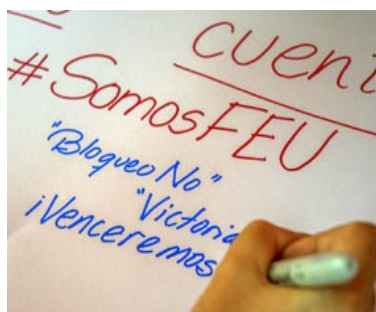 #SomosFEU
"Bloqueo No"
"Victoria
¡Venceremos